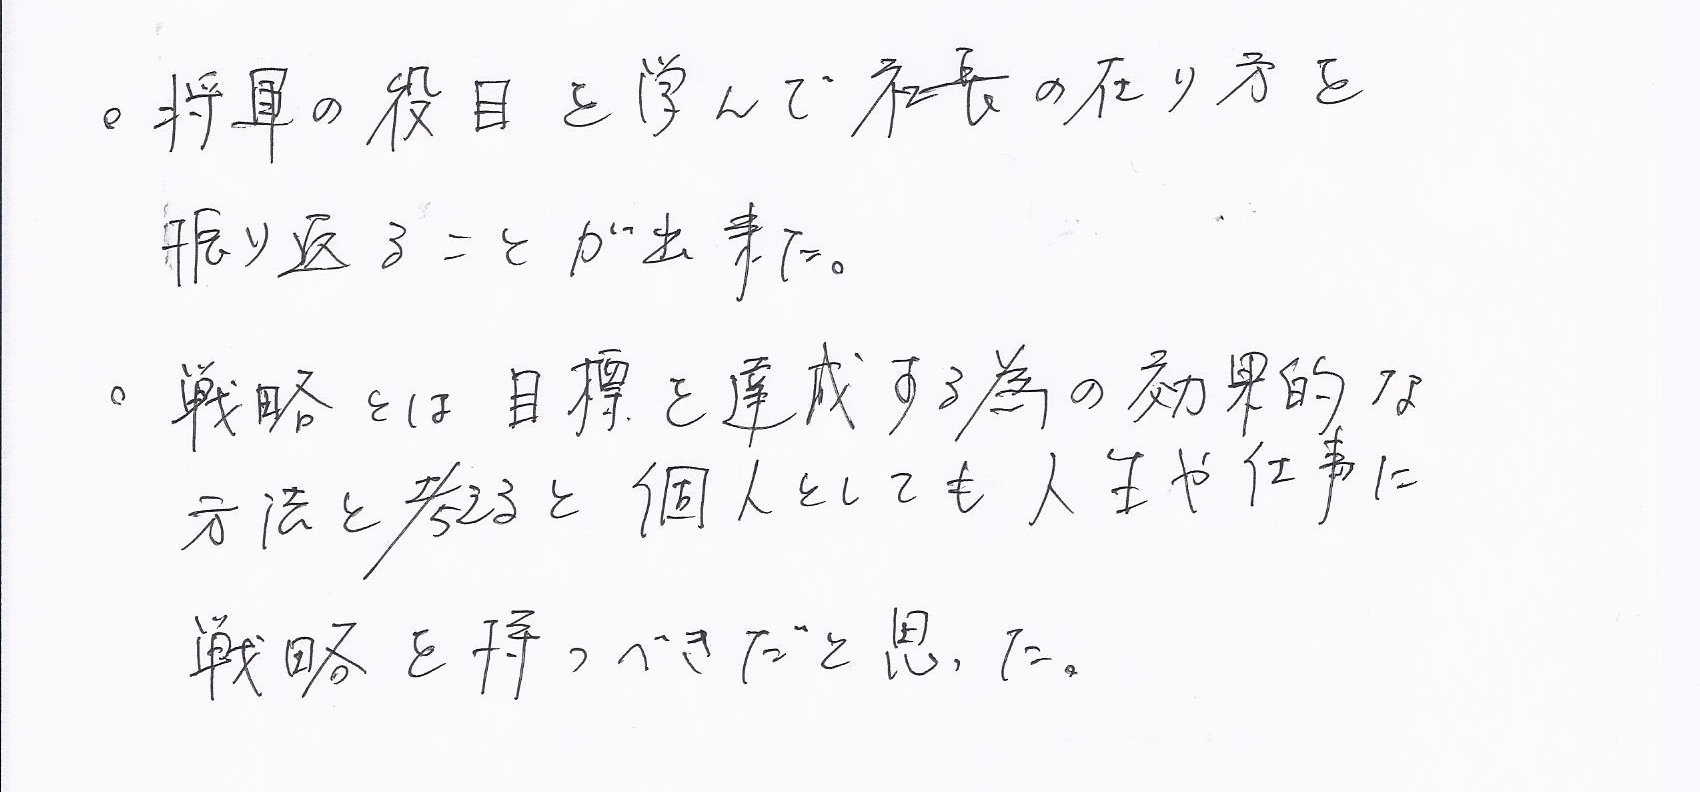 。将軍の役目を学んで社長の在り方を
振り返ることが出来た。
。戦略とは目標を達成する為の効果的な
方法と考えると個人としても人生や仕事に
戦略を持つべきだと思った。